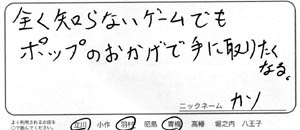 全く知らないゲームでも
ポップのおかげで手に取りたく
なる。
ニックネーム カソ
よく利用されるお店を
○で囲んでください。 立川 小作 羽村 昭島 青梅 高幡 堀之内 八王子